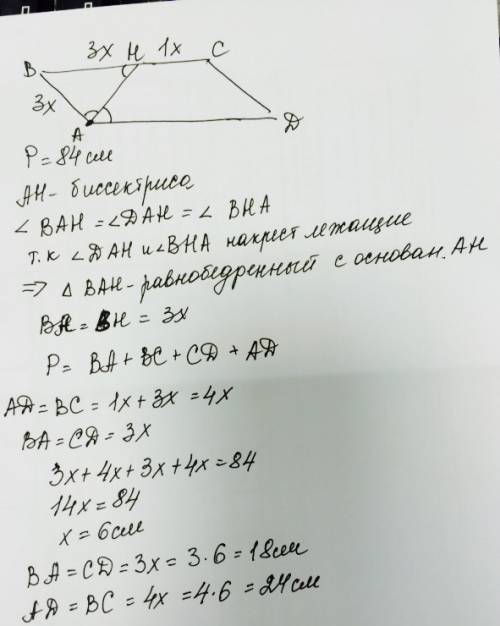 3x H 1x C
B
3x
A
D
P = 84 см
AH - биссектриса
∠ BAH = ∠DAH = ∠ BHA
т.к ∠DAH и ∠BHA накрест лежащие
=> Δ BAH - равнобедренный с основан. AH
BA = BH = 3x
P = BA + BC + CD + AD
AD = BC = 1x + 3x = 4x
BA = CD = 3x
3x + 4x + 3x + 4x = 84
14x = 84
x = 6 см
BA = CD = 3x = 3·6 = 18 см
AD = BC = 4x = 4·6 = 24 см